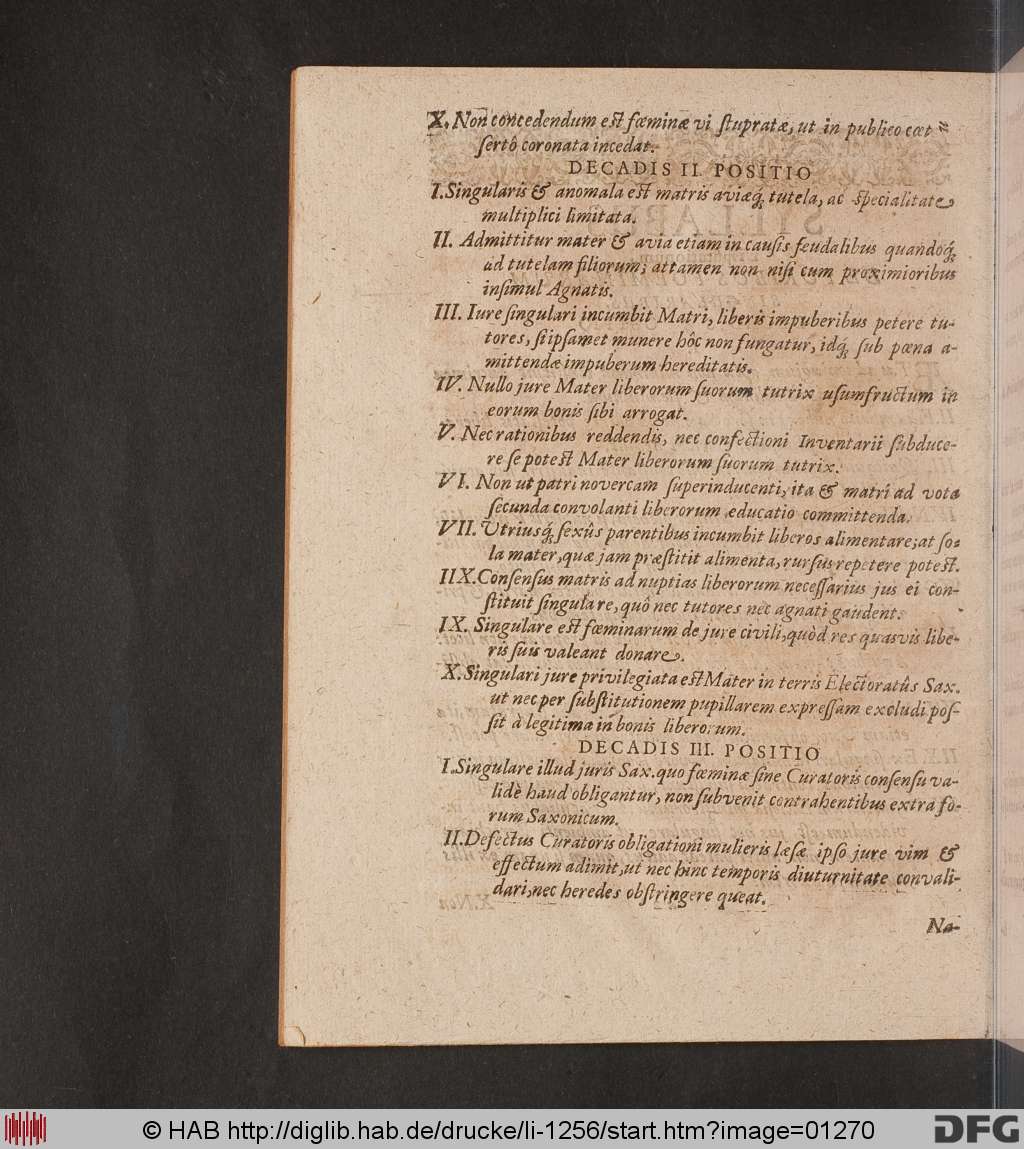 X. Non concedendum est fœminæ vi stupratæ, ut in publico cœt⸗
sertô coronata incedat.
DECADIS II. POSITIO
I. Singularis & anomala est matris aviæq́; tutela, ac specialitate
multiplici limitata.
II. Admittitur mater & avia etiam in causis feudalibus quandoq́;
ad tutelam filiorum; attamen non nisi cum proximioribus
insimul Agnatis.
III. Iure singulari incumbit Matri, liberis impuberibus petere tu-
tores, si ipsamet munere hôc non fungatur, idq́; sub pœna a-
mittendæ impuberum hereditatis.
IV. Nullo jure Mater liberorum suorum tutrix usumfructum in
eorum bonis sibi arrogat.
V. Nec rationibus reddendis, nec confectioni Inventarii subduce-
re se potest Mater liberorum suorum tutrix.
VI. Non ut patri novercam superinducenti, ita & matri ad vota
secunda convolanti liberorum educatio committenda.
VII. Utriusq́; sexûs parentibus incumbit liberos alimentare; at so-
la mater, quæ jam præstitit alimenta, rursus repetere potest.
IIX. Consensus matris ad nuptias liberorum necessarius jus ei con-
stituit singulare, quô nec tutores nec agnati gaudent.
IX. Singulare est fœminarum de jure civili, quòd res quasvis libe-
ris suis valeant donare.
X. Singulari jure privilegiata est Mater in terris Electoratûs Sax.
ut nec per substitutionem pupillarem expressam excludi pos-
sit à legitima in bonis liberorum.
DECADIS III. POSITIO
I. Singulare illud juris Sax. quo fœminæ sine Curatoris consensu va-
lidè haud obligantur, non subvenit contrahentibus extra fo-
rum Saxonicum.
II. Defectus Curatoris obligationi mulieris læsæ ipso jure vim &
effectum adimit, ut nec hinc temporis diuturnitate convali-
dari, nec heredes obstringere queat.
Na-
© HAB http://diglib.hab.de/drucke/li-1256/start.htm?image=01270
DFG